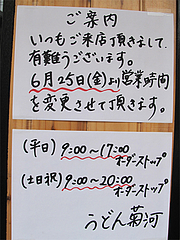 ご案内
いつもご来店頂きまして、
有難うございます。
6月25日(金)より営業時間
を変更させて頂きます。
(平日) 9:00〜17:00
オーダーストップ
(土日祝) 9:00〜20:00
オーダーストップ
うどん菊河